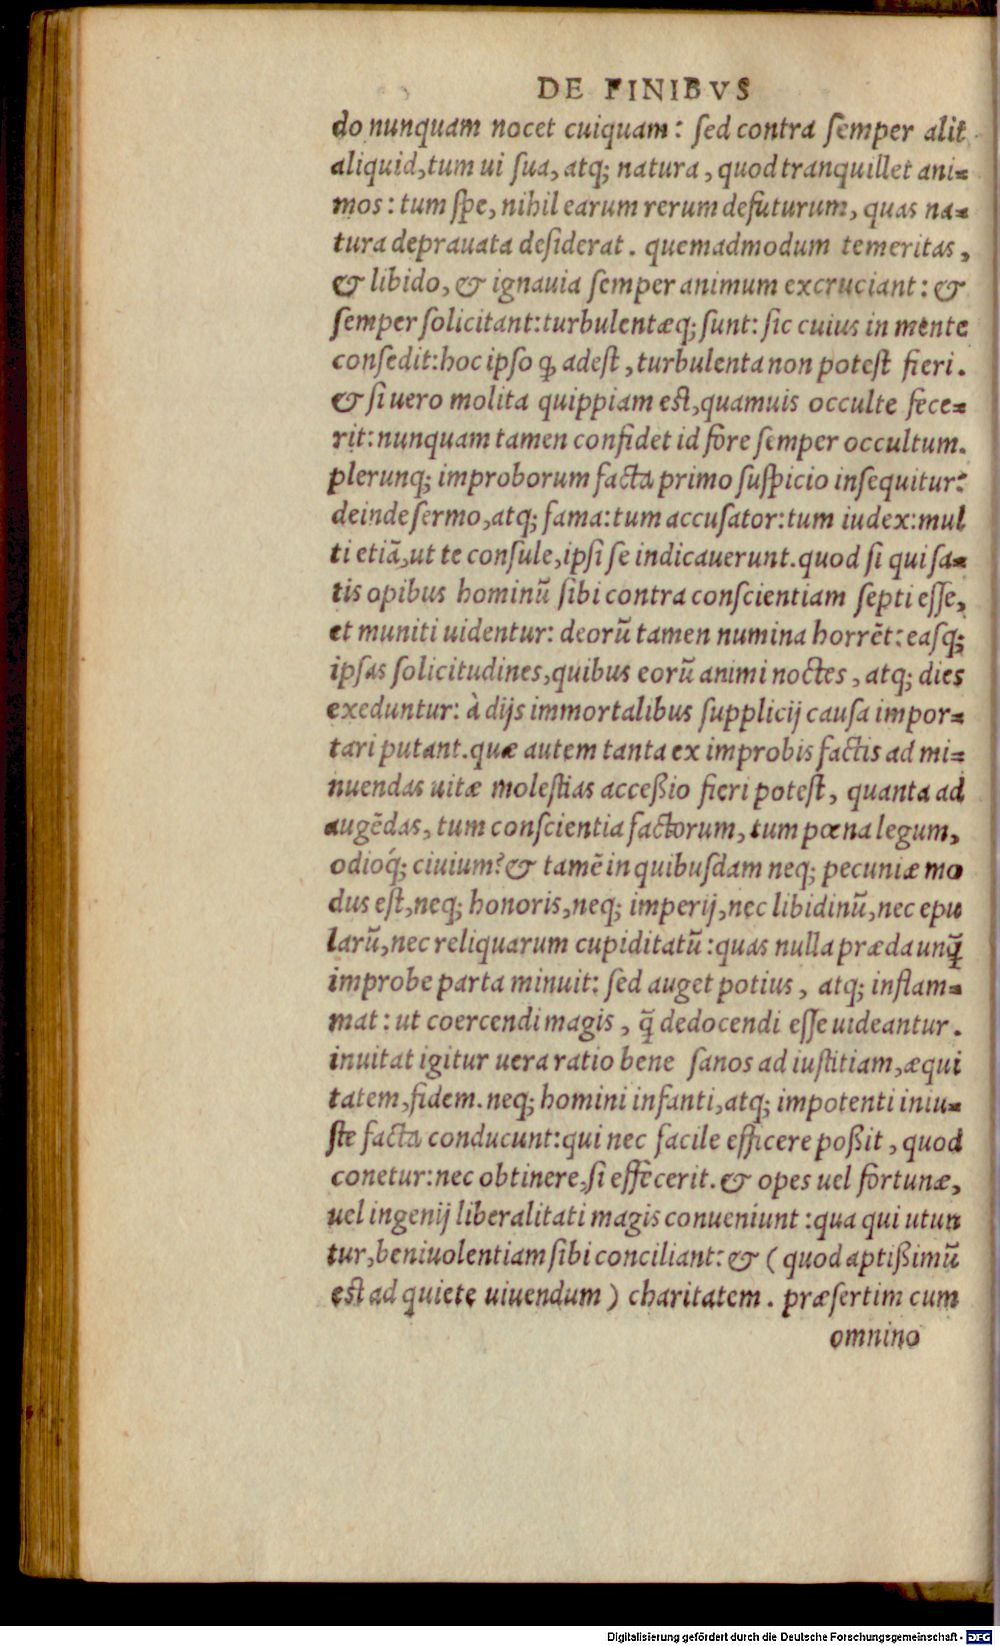 DE FINIBVS
do nunquam nocet cuiquam: sed contra semper alit
aliquid, tum ui sua, atq; natura, quod tranquillet ani=
mos: tum spe, nihil earum rerum defuturum, quas na=
tura deprauata desiderat. quemadmodum temeritas,
& libido, & ignauia semper animum excruciant: &
semper solicitant: turbulentæq; sunt: sic cuius in mente
consedit: hoc ipso ꝙ adest, turbulenta non potest fieri.
& si uero molita quippiam est, quamuis occulte fece=
rit: nunquam tamen confidet id fore semper occultum.
plerunq; improborum facta primo suspicio insequitur:
deinde sermo, atq; fama: tum accusator: tum iudex: mul
ti etiā, ut te consule, ipsi se indicauerunt. quod si qui sa=
tis opibus hominū sibi contra conscientiam septi esse,
et muniti uidentur: deorū tamen numina horrēt: easq;
ipsas solicitudines, quibus eorū animi noctes, atq; dies
exeduntur: à dijs immortalibus supplicij causa impor=
tari putant. quæ autem tanta ex improbis factis ad mi=
nuendas uitæ molestias acceßio fieri potest, quanta ad
augēdas, tum conscientia factorum, tum pœna legum,
odioq́; ciuium? & tamē in quibusdam neq; pecuniæ mo
dus est, neq; honoris, neq; imperij, nec libidinū, nec epu
larū, nec reliquarum cupiditatū: quas nulla præda unq̄
improbe parta minuit: sed auget potius, atq; inflam=
mat: ut coercendi magis, q̄ dedocendi esse uideantur.
inuitat igitur uera ratio bene sanos ad iustitiam, æqui
tatem, fidem. neq; homini infanti, atq; impotenti iniu=
ste facta conducunt: qui nec facile efficere poßit, quod
conetur: nec obtinere, si effecerit. & opes uel fortunæ,
uel ingenij liberalitati magis conueniunt: qua qui utun
tur, beniuolentiam sibi conciliant: & (quod aptißimū
est ad quiete uiuendum) charitatem. præsertim cum
omnino
Digitalisierung gefördert durch die Deutsche Forschungsgemeinschaft - DFG